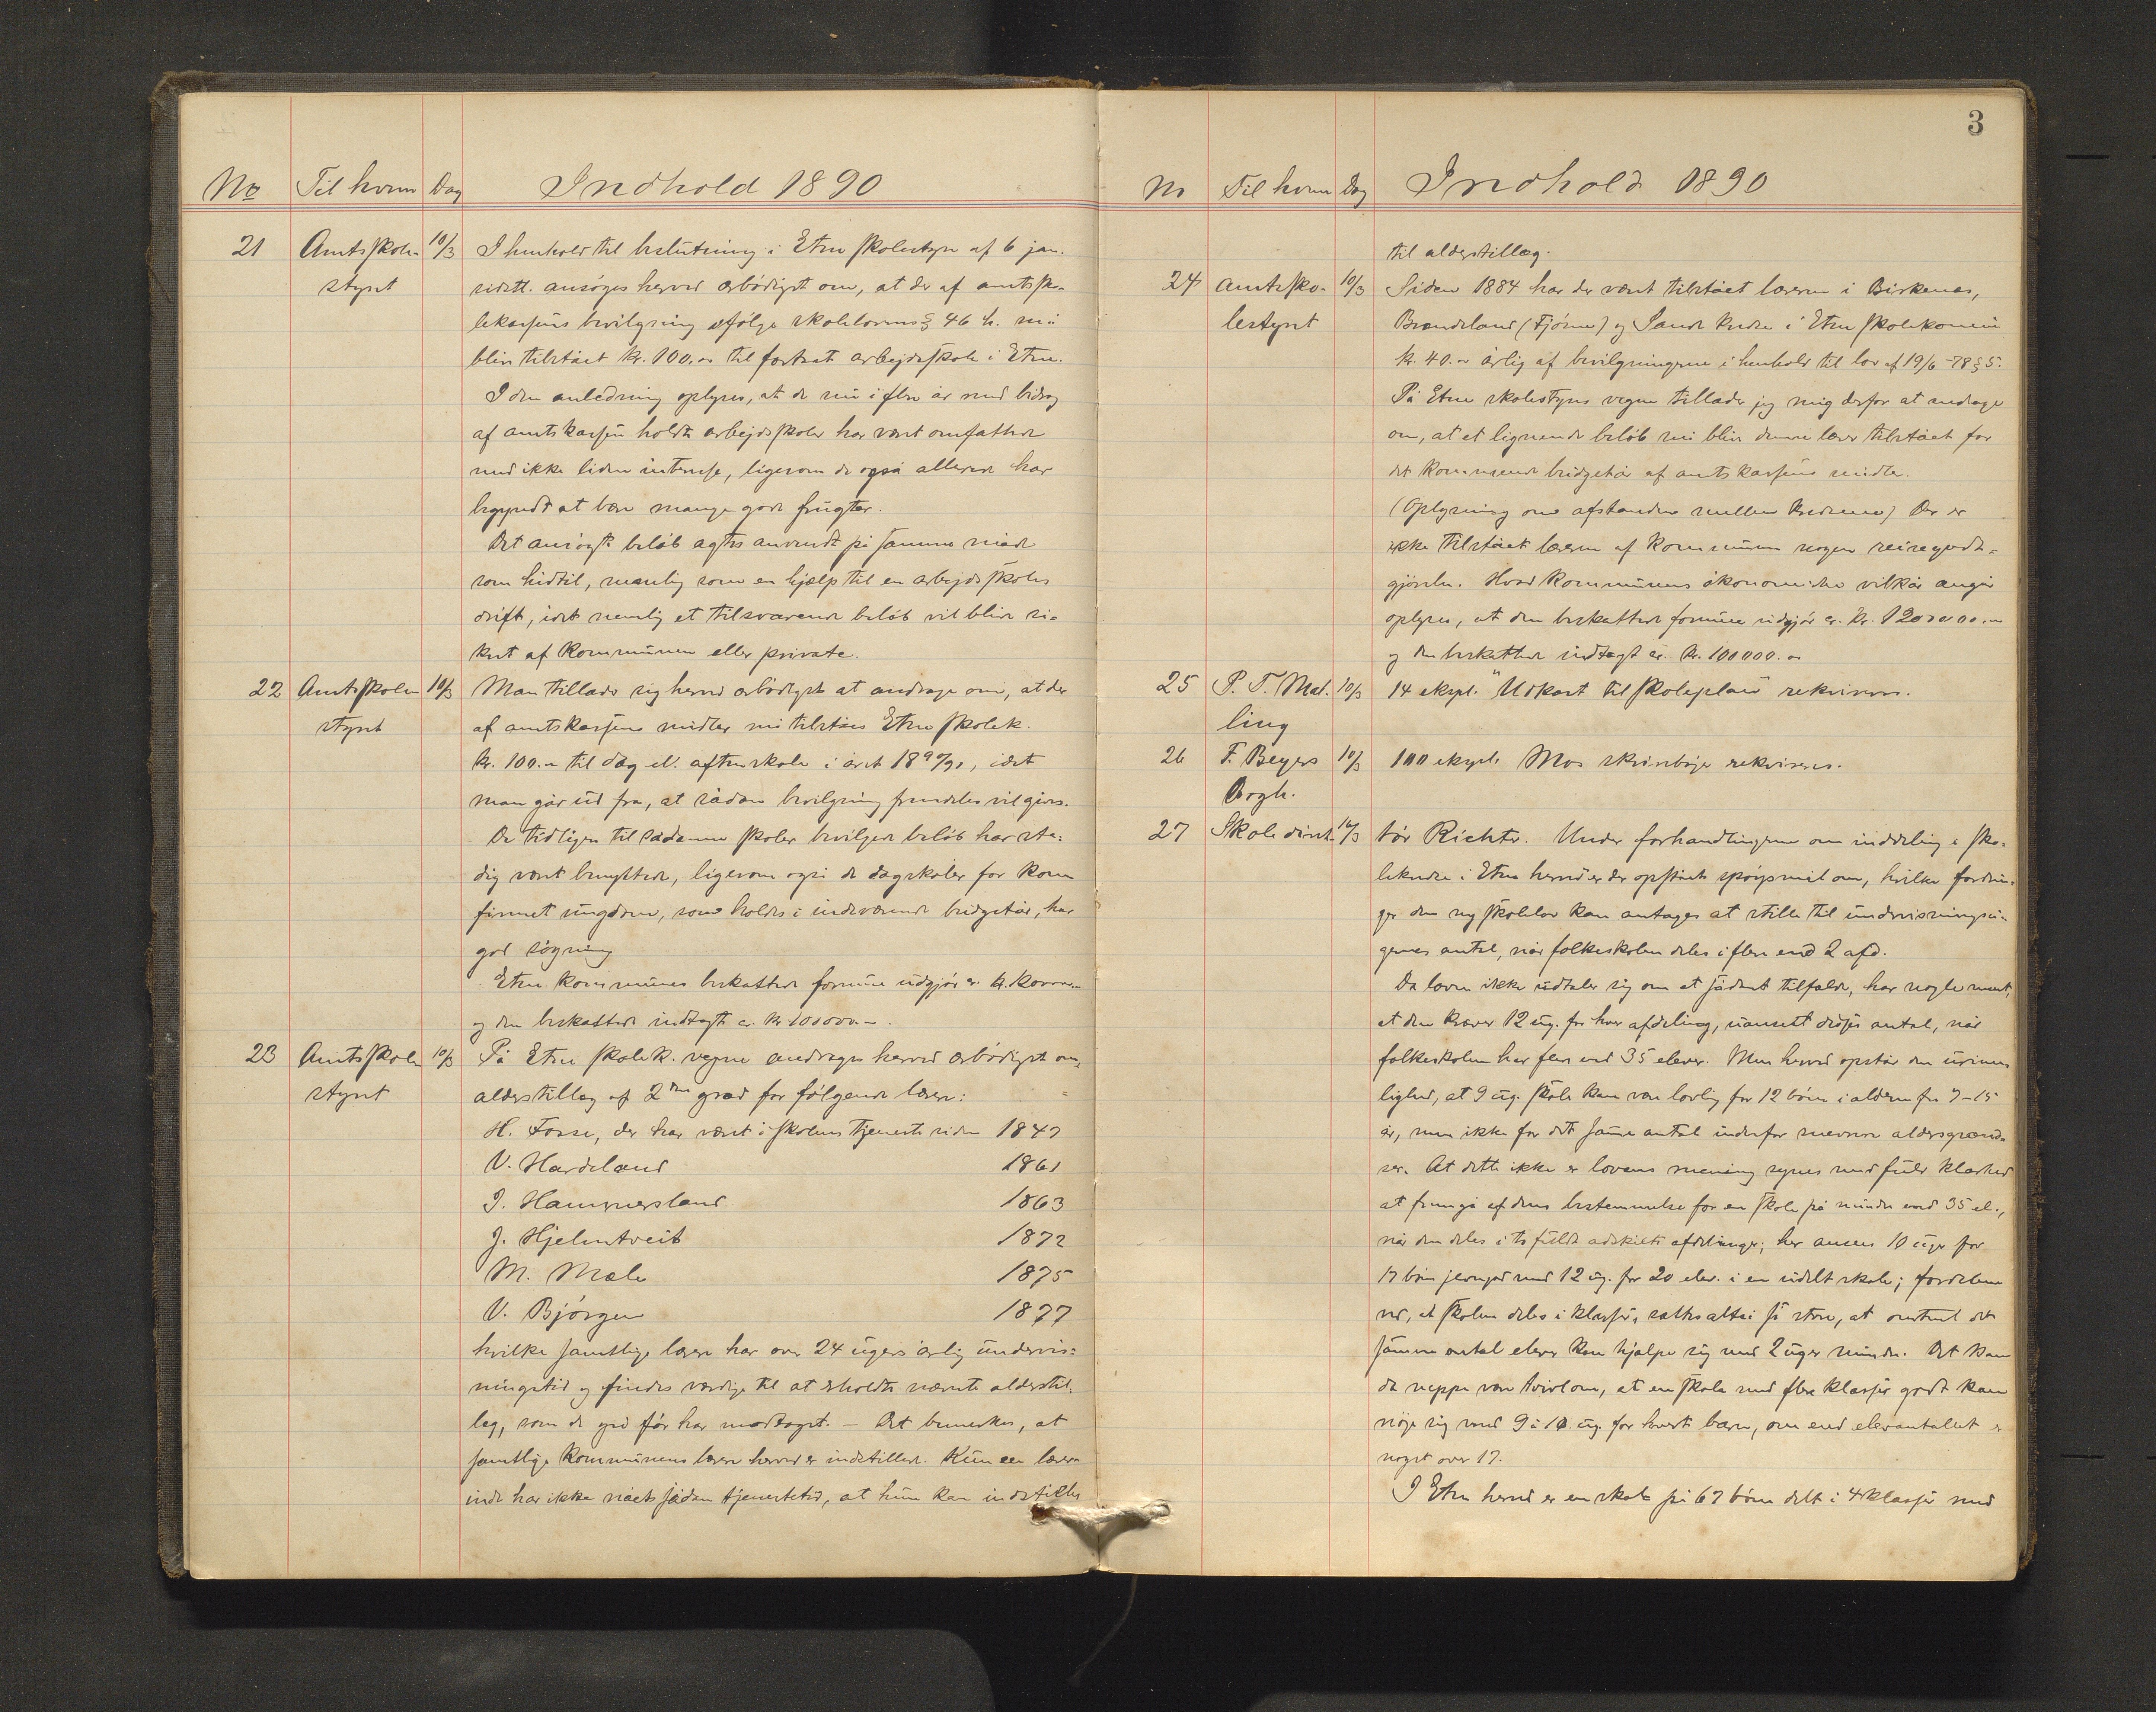 No Til hvem Dag Indhold 1890
21 Amtsskole- 10/3 I henhold til beslutning i Etne skolestyre af 6 jan.
styret sidstl. ansøges herved ærbødigst om, at der af amtssko-
lekassens bevilgning ifølge skolelovens § 46 h. må
blive tilstået kr. 100.00 til fortsat arbejdsskole i Etne.
I den anledning oplyses, at de nu i flere år med bidrag
af amtskassen holdte arbejdsskoler har været omfattede
med ikke liden interesse, ligesom de også allerede har
begyndt at bære mange gode frugter.
Det ansøgte beløb agtes anvendt på samme måde
som hidtil, nemlig som en hjælp til en arbejdsskoles
drift, idet nemlig et tilsvarende beløb vil blive si-
kret af kommunen eller private.
22 Amtsskole 10/3 Man tillader sig herved ærbødigst at andrage om, at der
styret af amtskassens midler må tilståes Etne skolek.
kr. 100.00 til dag el. aftenskole i året 1890/91, idet
man går ud fra, at sådan bevilgning fremdeles vil gives.
De tidligere til sådanne skoler bevilgede beløb har sta-
dig været benyttede, ligesom også de dagskoler for kon
firmert ungdom, som holdes i indeværende budgetår, har
god søgning
Etne kommunes beskattede formue udgjør ca. kr.
og den beskattede indtægt ca. kr 100000.-
23 Amtsskole 10/3 På Etne skolek. vegne andrages herved ærbødigst om
styret alderstillæg af 2den grad for følgende lærere:
H. Fosse, der har været i skolens tjeneste siden 1847
V. Hardeland 1861
I. Hammersland 1863
J. Hjelmtveit 1872
M. Mæle 1875
V. Bjørgen 1877
hvilke samtlige lærere har over 24 ugers årlig undervis-
ningstid og findes værdige til at erholde nævnte alderstil-
læg, som de også før har modtaget. — Det bemerkes, at
samtlige kommunens lærere herved er indstillede. Kun een lærer-
inde har ikke nået sådan tjenestetid, at hun kan indstilles
3
No Til hvem Dag Indhold 1890
til alderstillæg.
24 Amtssko- 10/3 Siden 1884 har der været tilstået læreren i Birkenes,
lestyret Brændeland (Fjösne) og Sande kredse i Etne skolekomm
kr. 40.00 årlig af bevilgningerne i henhold til lov af 19/6 -78 § 5.
På Etne skolestyres vegne tillader jeg mig derfor at andrage
om, at et lignende beløb må blive denne lærer tilstået for
det kommende budgetår af amtskassens midler.
(Oplysning om afstanden mellem kredsene) Der er
ikke tilstået læreren af kommunen nogen reisegodt-
gjørelse. Hvad kommunens økonomiske vilkår angår
oplyses, at den beskattede formue udgjør ca. kr. 1200000.00
og den beskattede indtægt ca. kr. 100000.00
25 P. T. Mal- 10/3 14 ekspl. "Udkast til skoleplan" rekvireres.
ling
26 F. Beyers 10/3 100 ekspl. Mos skrivebøger rekvireres.
Bogh.
27 Skoledirek- 14/3 tör Richter. Under forhandlingerne om inddeling i sko-
lekredse i Etne herred er der opstået spørgsmål om, hvilke fordrin-
ger den ny skolelov kan antages at stille til undervisningsu-
gernes antal, når folkeskolen deles i flere end 2 afd.
Da loven ikke udtaler sig om et sådant tilfælde, har nogle ment,
at den kræver 12 ug. for hver afdeling, uanset disses antal, når
folkeskolen har flere end 35 elever. Men herved opstår den urime
lighed, at 9 ug. skole kan være lovlig for 12 børn i alderen fra 7-15
år, men ikke for det samme antal indenfor snevrere aldersgrænd-
ser. At dette ikke er lovens mening synes med fuld klarhed
at fremgå af dens bestemmelse for en skole på mindre end 35 el.,
når den deles i to fuldt adskilte afdelinger; her ansees 10 uger for
17 børn jevngod med 12 ug. for 20 elev. i en udelt skole; fordelene
ved, at skolen deles i klasser, sættes altså så store, at omtrent det
samme antal elever kan hjælpe sig med 2 uger mindre. Det kan
da neppe være tvivl om, at en skole med flere klasser godt kan
nøje sig med 9 à 10 ug. for hvert barn, om end elevantallet er
noget over 17.
I Etne herred er en skole på 67 børn delt i 4 klasser med